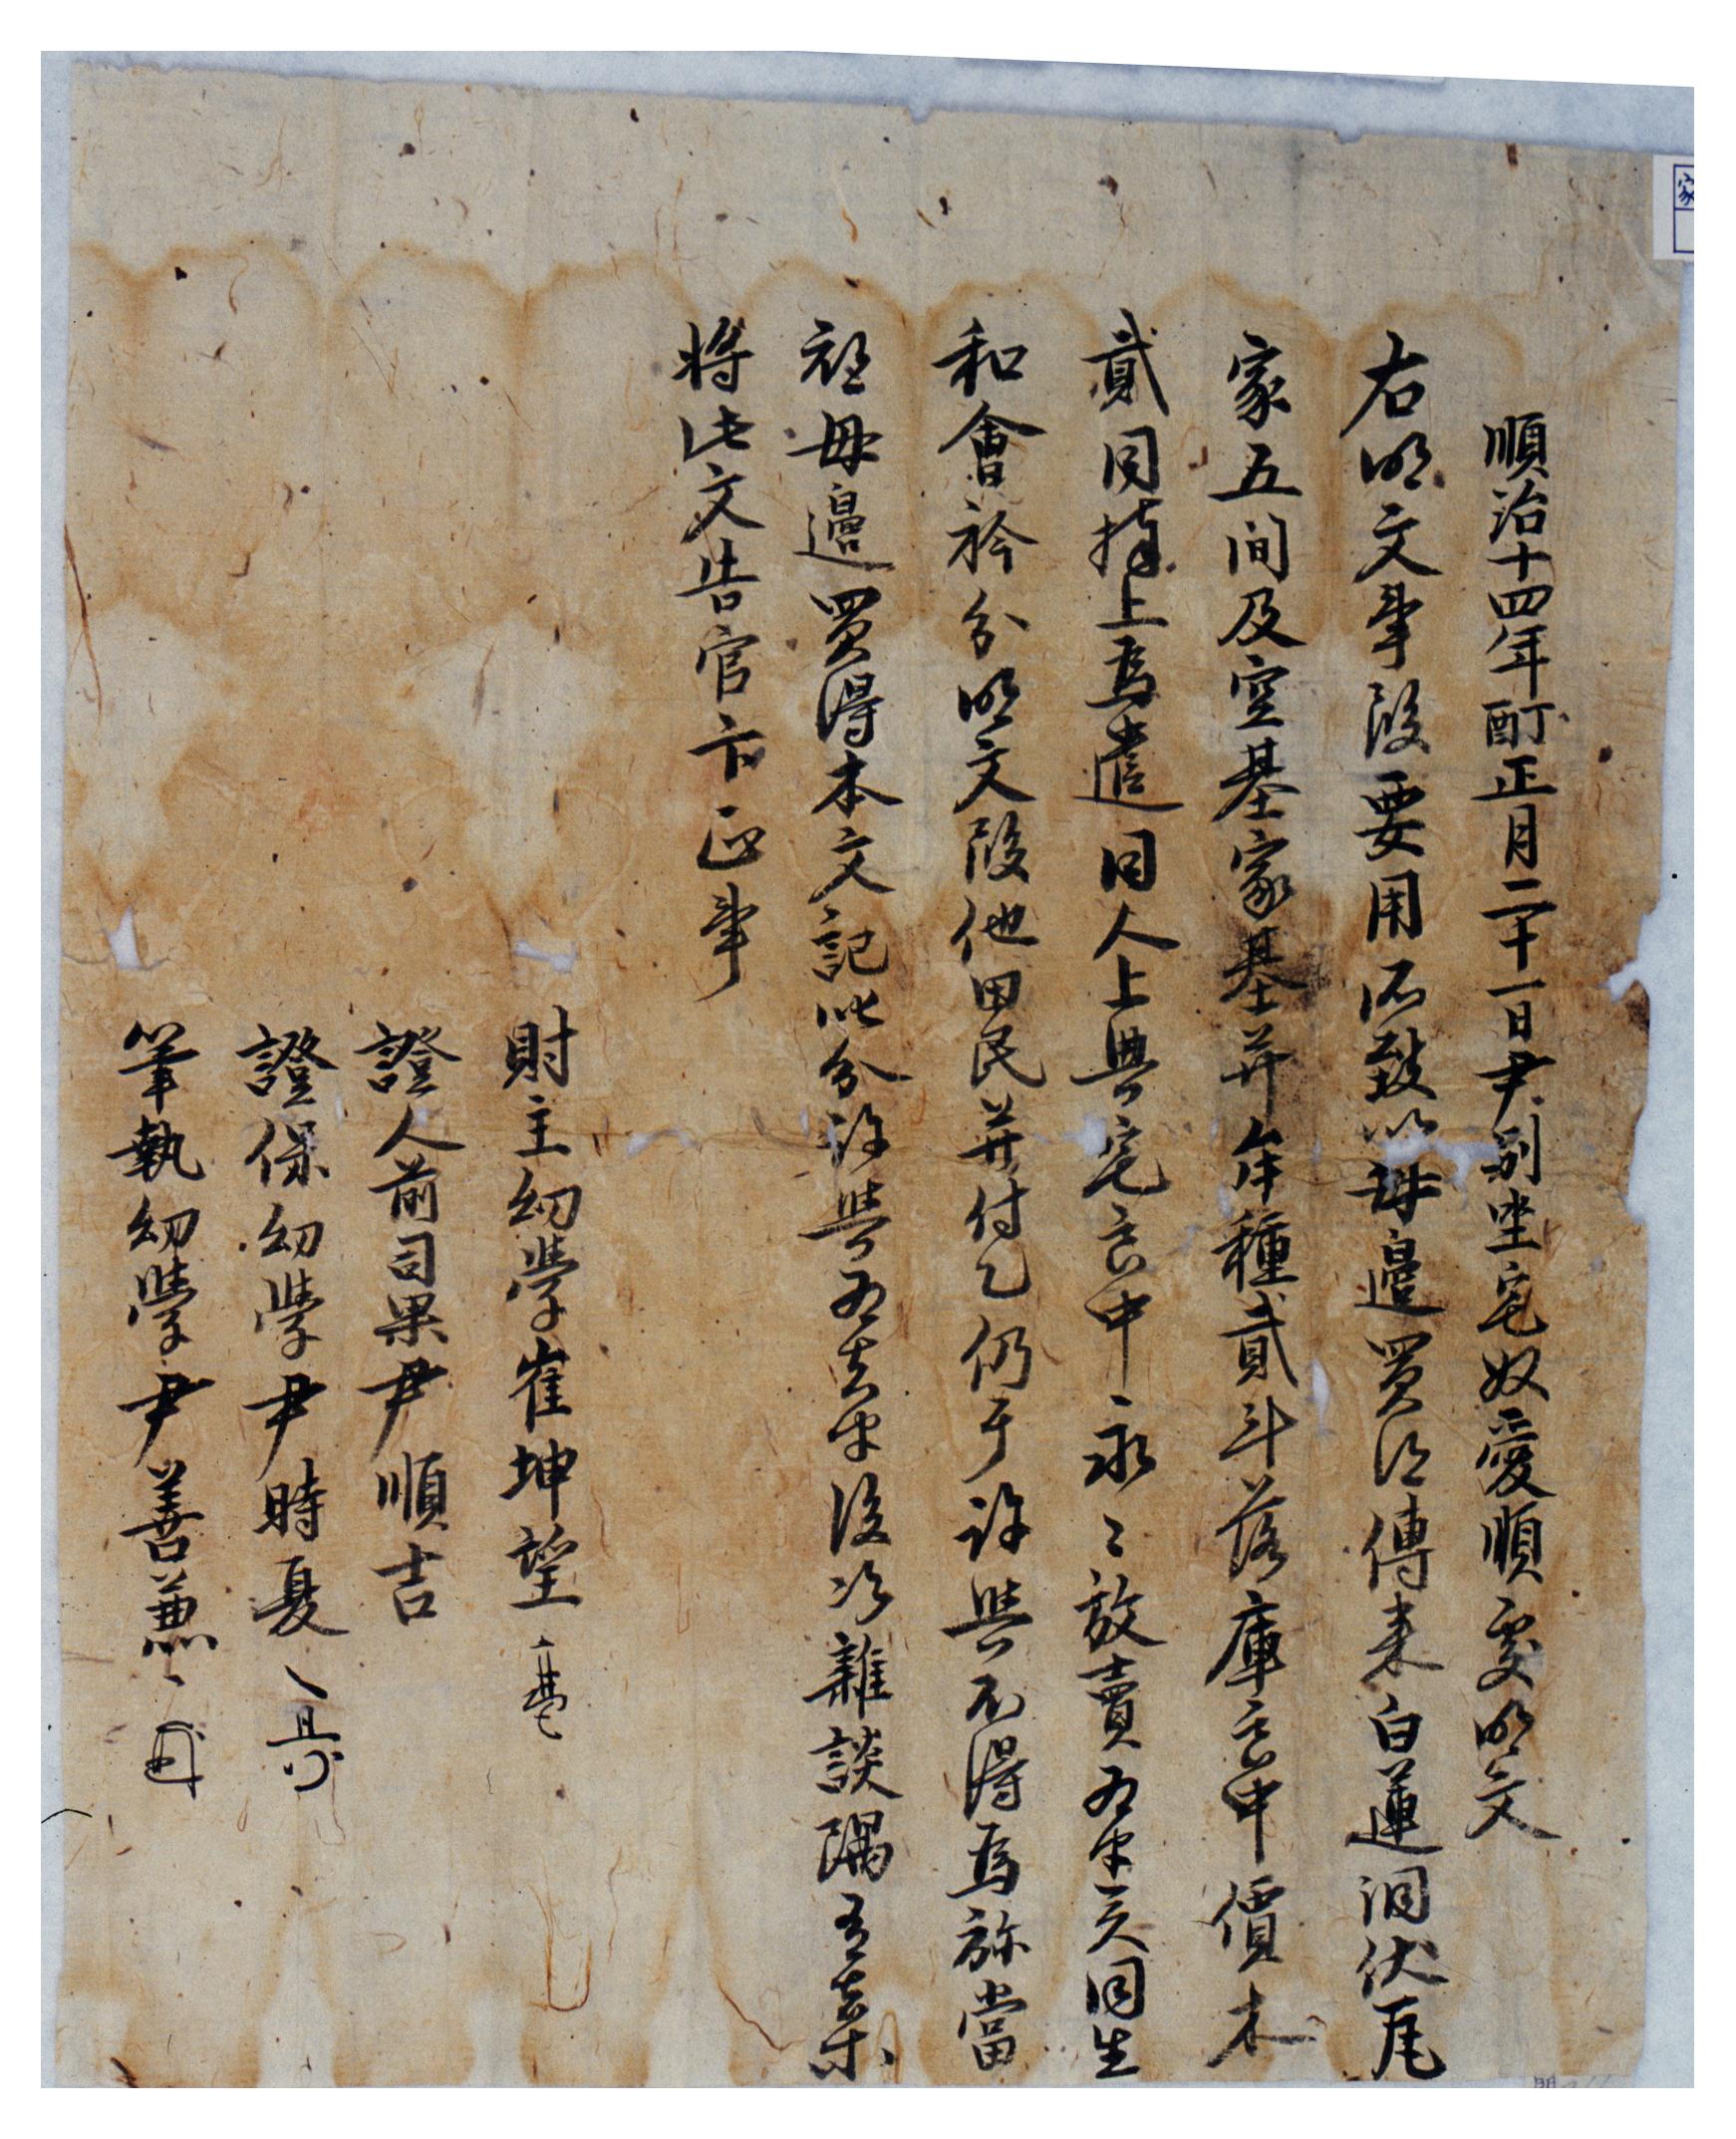 順治十四年丁酉正月二十一日尹別坐宅奴愛順處明文
右明文事段要用所致以諱邊買得傳來白蓮洞伏在瓦
家五間及空基家基幷牟種貳斗落庫乙良中價木
貳同捧上爲遣同人上典宅良中永〻放賣爲乎矣同生
和會衿分明文段他田民幷付乙仍于許與不得爲㫆當
祖母邊買得本文記以分許與爲去乎後次雜談隅有去等
將此文告官卞正事
財主幼學崔坤望
證人前司果尹順吉
證保幼學尹時夏
筆執幼學尹善兼
家